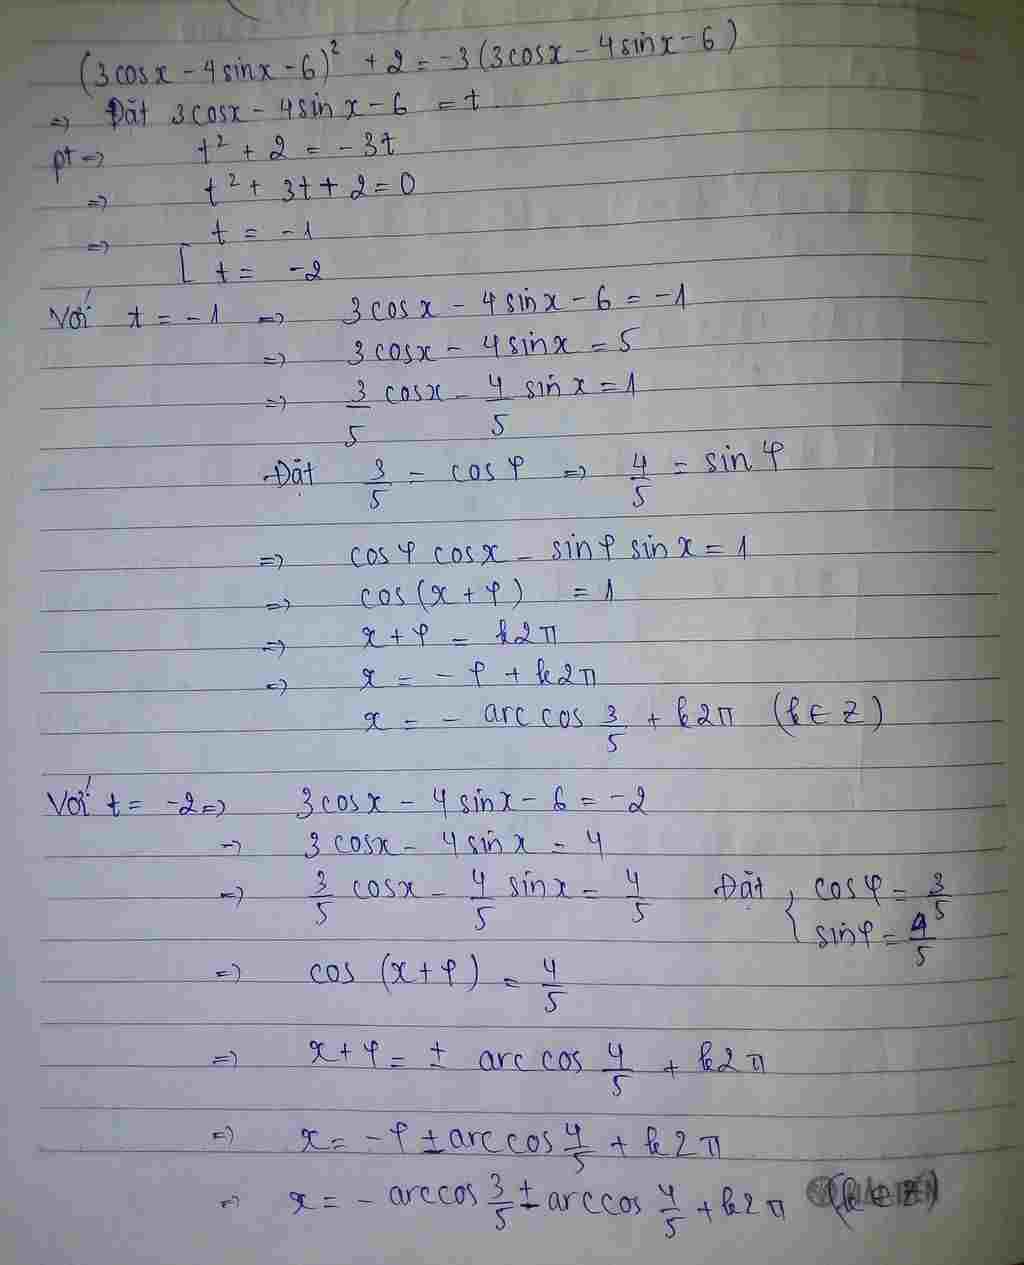 (3cosx - 4sinx - 6)² + 2 = -3(3cosx - 4sinx - 6)
=> Đặt 3cosx - 4sinx - 6 = t
pt => t² + 2 = -3t
=> t² + 3t + 2 = 0
=> [ t = -1
t = -2
Với t = -1 => 3cosx - 4sinx - 6 = -1
=> 3cosx - 4sinx = 5
=> 3/5 cosx - 4/5 sinx = 1
Đặt 3/5 = cosφ => 4/5 = sinφ
=> cosφ cosx - sinφ sinx = 1
=> cos(x + φ) = 1
=> x + φ = k2π
=> x = -φ + k2π
x = - arccos 3/5 + k2π (k ∈ Z)
Với t = -2 => 3cosx - 4sinx - 6 = -2
=> 3cosx - 4sinx = 4
=> 3/5 cosx - 4/5 sinx = 4/5 Đặt { cosφ = 3/5
sinφ = 4/5
=> cos (x + φ) = 4/5
=> x + φ = ± arccos 4/5 + k2π
=> x = -φ ± arccos 4/5 + k2π
=> x = - arccos 3/5 ± arccos 4/5 + k2π (k ∈ Z)